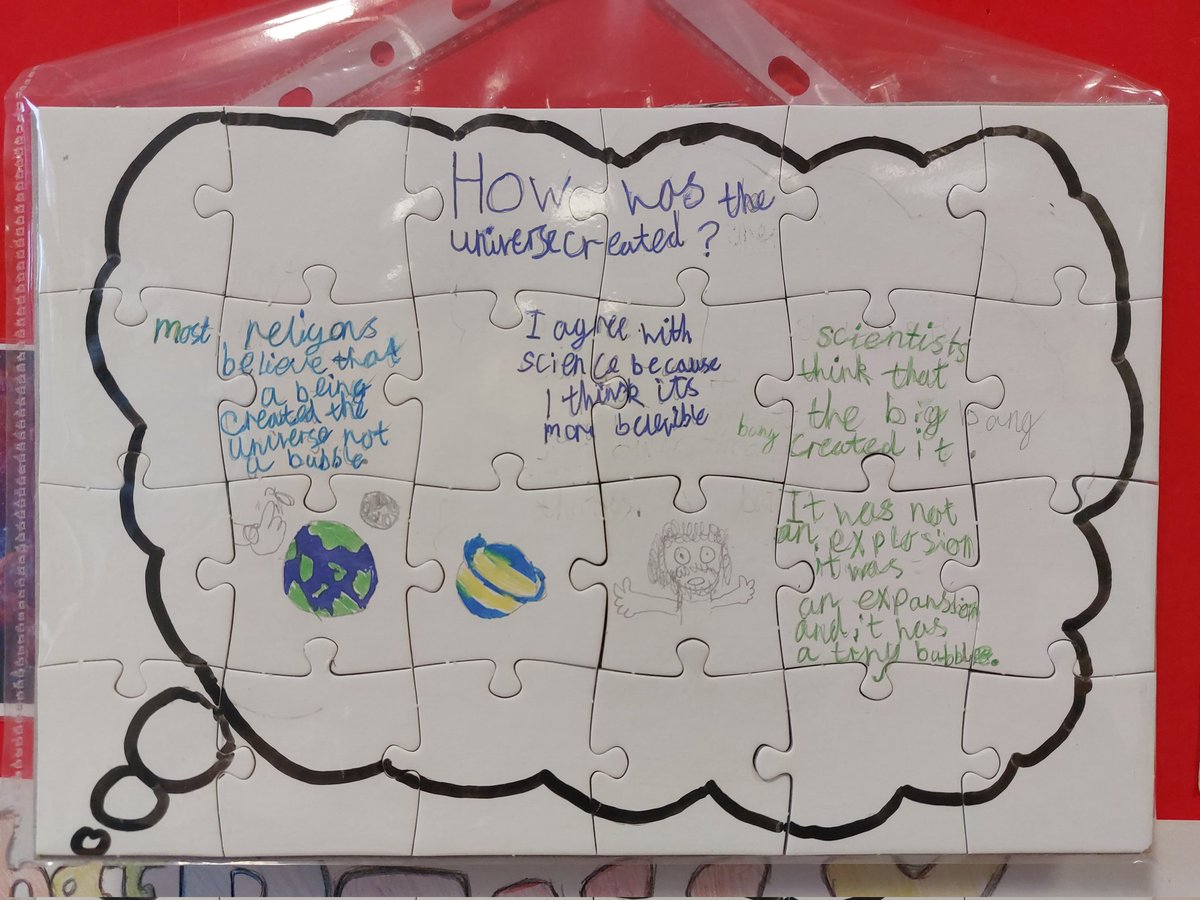 How was the
universe created?
most religons
believe that
a being
created the
universe not
a bubble.
I agree with
science because
I think its
more belevible
scientists
think that
the big bang
bang created it
It was not
an explosion
it was
an expansion
and it was
a tiny bubble.